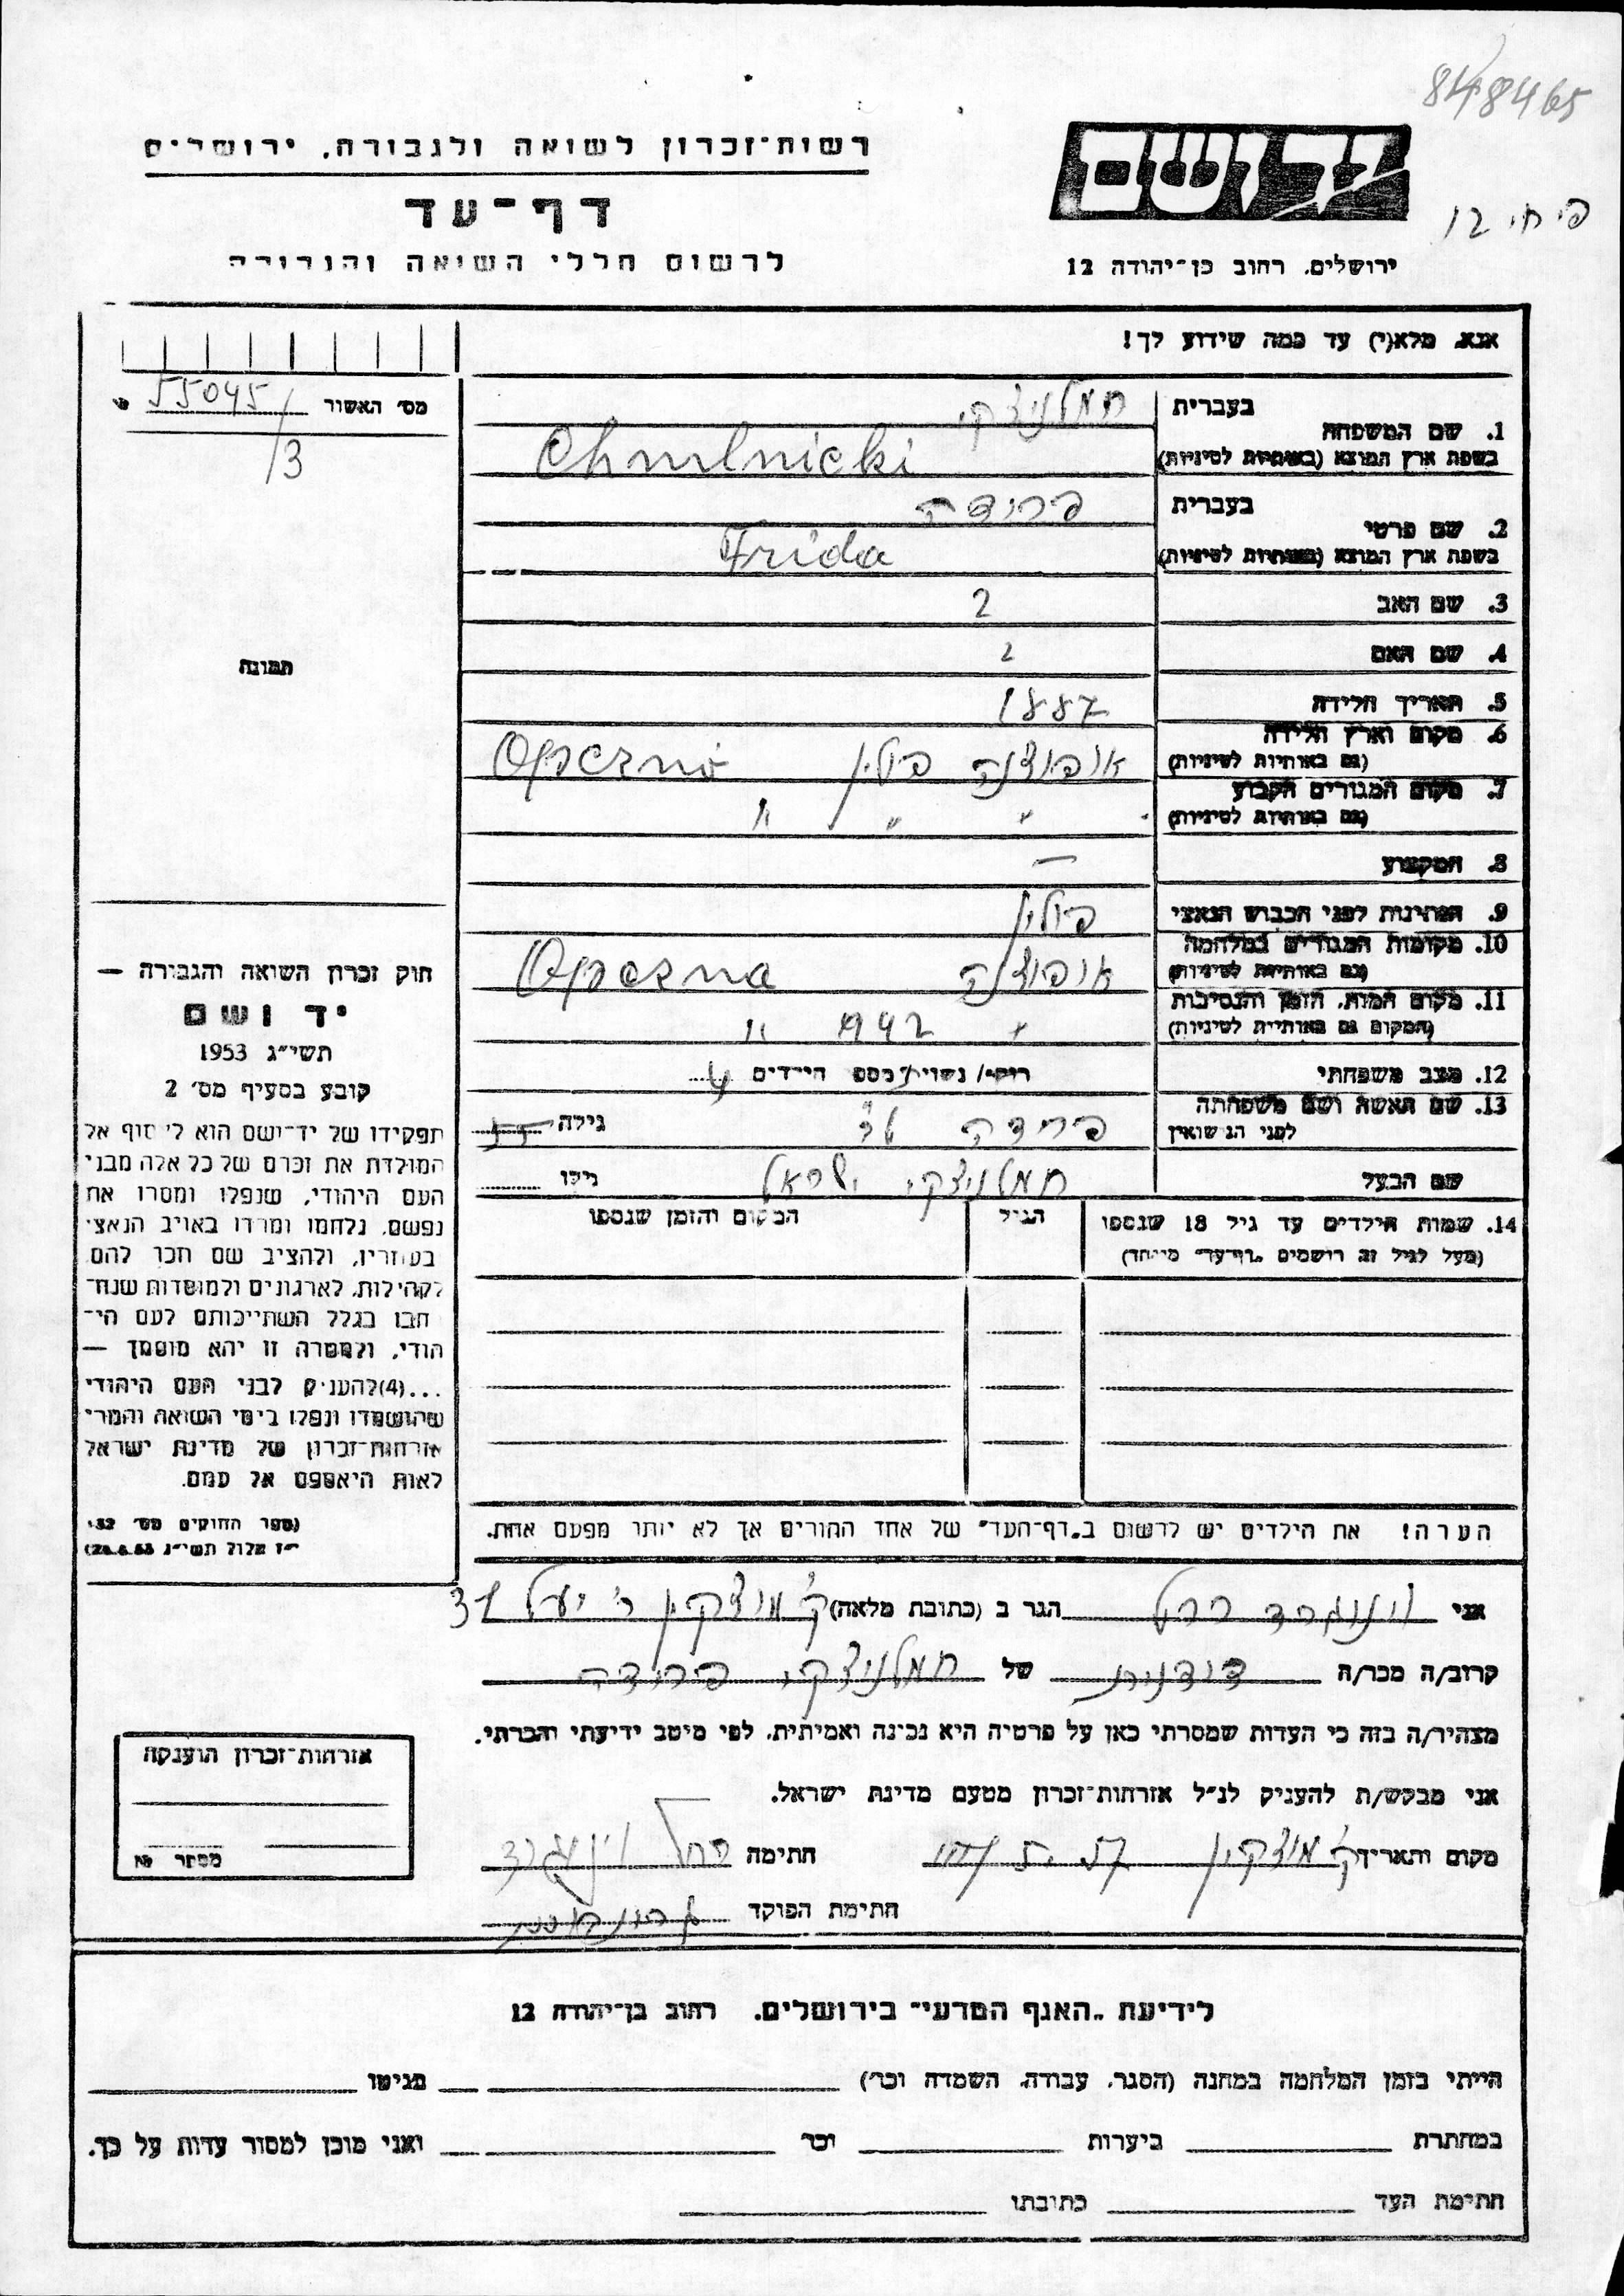 848465
רשות־זכרון לשואה ולגבורה, ירושלים
יד ושם
דף־עד
12
לרשום חללי השואה והגבורה
ירושלים, רחוב בן־יהודה 12
אנא, מלא(י) עד כמה שידוע לך!
מס׳ האשור 55045/3
1. שם המשפחה
בעברית חמלניצקי
בשפת ארץ המוצא (באותיות לטיניות) Chmlnicki
2. שם פרטי
בעברית פרידה
בשפת ארץ המוצא (באותיות לטיניות) Frida
3. שם האב ?
4. שם האם ?
תמונה
5. תאריך הלידה 1887
6. מקום וארץ הלידה
(גם באותיות לטיניות) אופוצנה פולין Opczno
7. מקום המגורים הקבוע
(גם באותיות לטיניות) " " "
8. המקצוע —
9. הנתינות לפני הכבוש הנאצי פולין
10. מקומות המגורים במלחמה
(גם באותיות לטיניות) אופוצנה Opczna
11. מקום המות, הזמן והנסיבות
(המקום גם באותיות לטיניות) " 1942 "
12. מצב משפחתי רוק/ נשוי/ מספר הילדים 4
13. שם האשה ושם משפחתה
לפני הנישואין פרידה גילה 55
שם הבעל חמלניצקי ישראל גילו
14. שמות הילדים עד גיל 18 שנספו
(מעל לגיל זה רושמים „דף־עד״ מיוחד)
הגיל
המקום והזמן שנספו
הערה! את הילדים יש לרשום ב„דף־העד״ של אחד ההורים אך לא יותר מפעם אחת.
חוק זכרון השואה והגבורה —
יד ושם
תשי״ג 1953
קובע בסעיף מס׳ 2
תפקידו של יד־ושם הוא לאסוף אל
המולדת את זכרם של כל אלה מבני
העם היהודי, שנפלו ומסרו את
נפשם, נלחמו ומרדו באויב הנאצי
בעוזריו, ולהציב שם וזכר להם
לקהילות, לארגונים ולמוסדות שנח־
רבו בגלל השתייכותם לעם הי־
הודי, ולמטרה זו יהא מוסמך —
...(4)להעניק לבני העם היהודי
שהושמדו ונפלו בימי השואה והמרי
אזרחות־זכרון של מדינת ישראל
לאות היאספם אל עמם.
(ספר החוקים מס׳ 132,
י״ז אלול תשי״ג 28.8.53)
אני וינוגרד רחל הגר ב (כתובת מלאה) ק׳ מוצקין ר׳ יעל 31
קרוב/ה מכר/ה דודנית של חמלניצקי פרידה
מצהיר/ה בזה כי העדות שמסרתי כאן על פרטיה היא נכונה ואמיתית, לפי מיטב ידיעתי והכרתי.
אני מבקש/ת להעניק לנ״ל אזרחות־זכרון מטעם מדינת ישראל.
מקום ותאריך ק׳ מוצקין חתימה רחל וינוגרד
חתימת הפוקד
אזרחות־זכרון הוענקה
מספר №
לידיעת „האגף המדעי״ בירושלים, רחוב בן־יהודה 12
הייתי בזמן המלחמה במחנה (הסגר, עבודה, השמדה וכו׳) בגיטו
במחתרת ביערות וכו׳ ואני מוכן למסור עדות על כך.
חתימת העד כתובתו